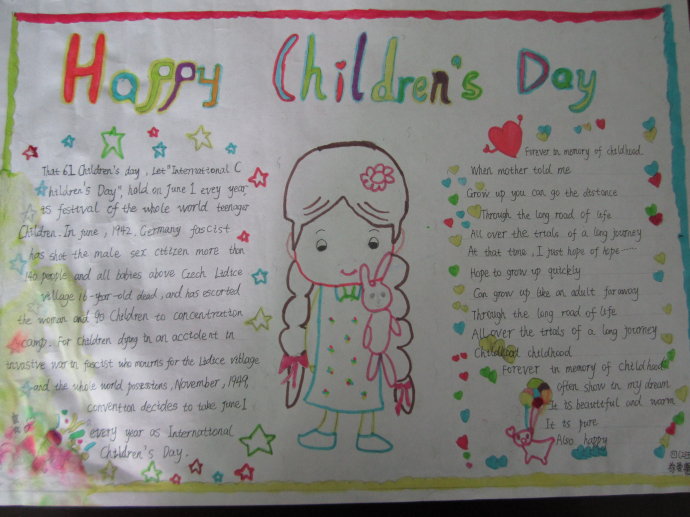 Happy Children's Day
That 61 Children's day, Let "International C
hildren's Day", hold on June 1 evey year
is festival of the whole world teenager
Children. In june, 1942, Germany fascist
has shot the male sex citizen more than
140 people and all babies above Czech Lidice
village 16-year-old dead, and has escorted
the woman and 90 children to concentration
camp. For children dying in an accident in
invasive war in fascist who mourns for the Lidice village
and the whole world possessions, November, 1949,
convention decides to take june 1
every year as International
Children's Day.
Forever in memory of childhood
When mother told me
Grow up you can go the distance
Through the long road of life
All over the trials of a long journey
At that time, I just hope of hope ······
Hope to grow up quickly
Can grow up like an adult far away
Through the long road of life
All over the trials of a long journey
Childhood childhood
Forever in memory of childhood
often show in my dream
It is beautiful and warm
It is pure
Also happy